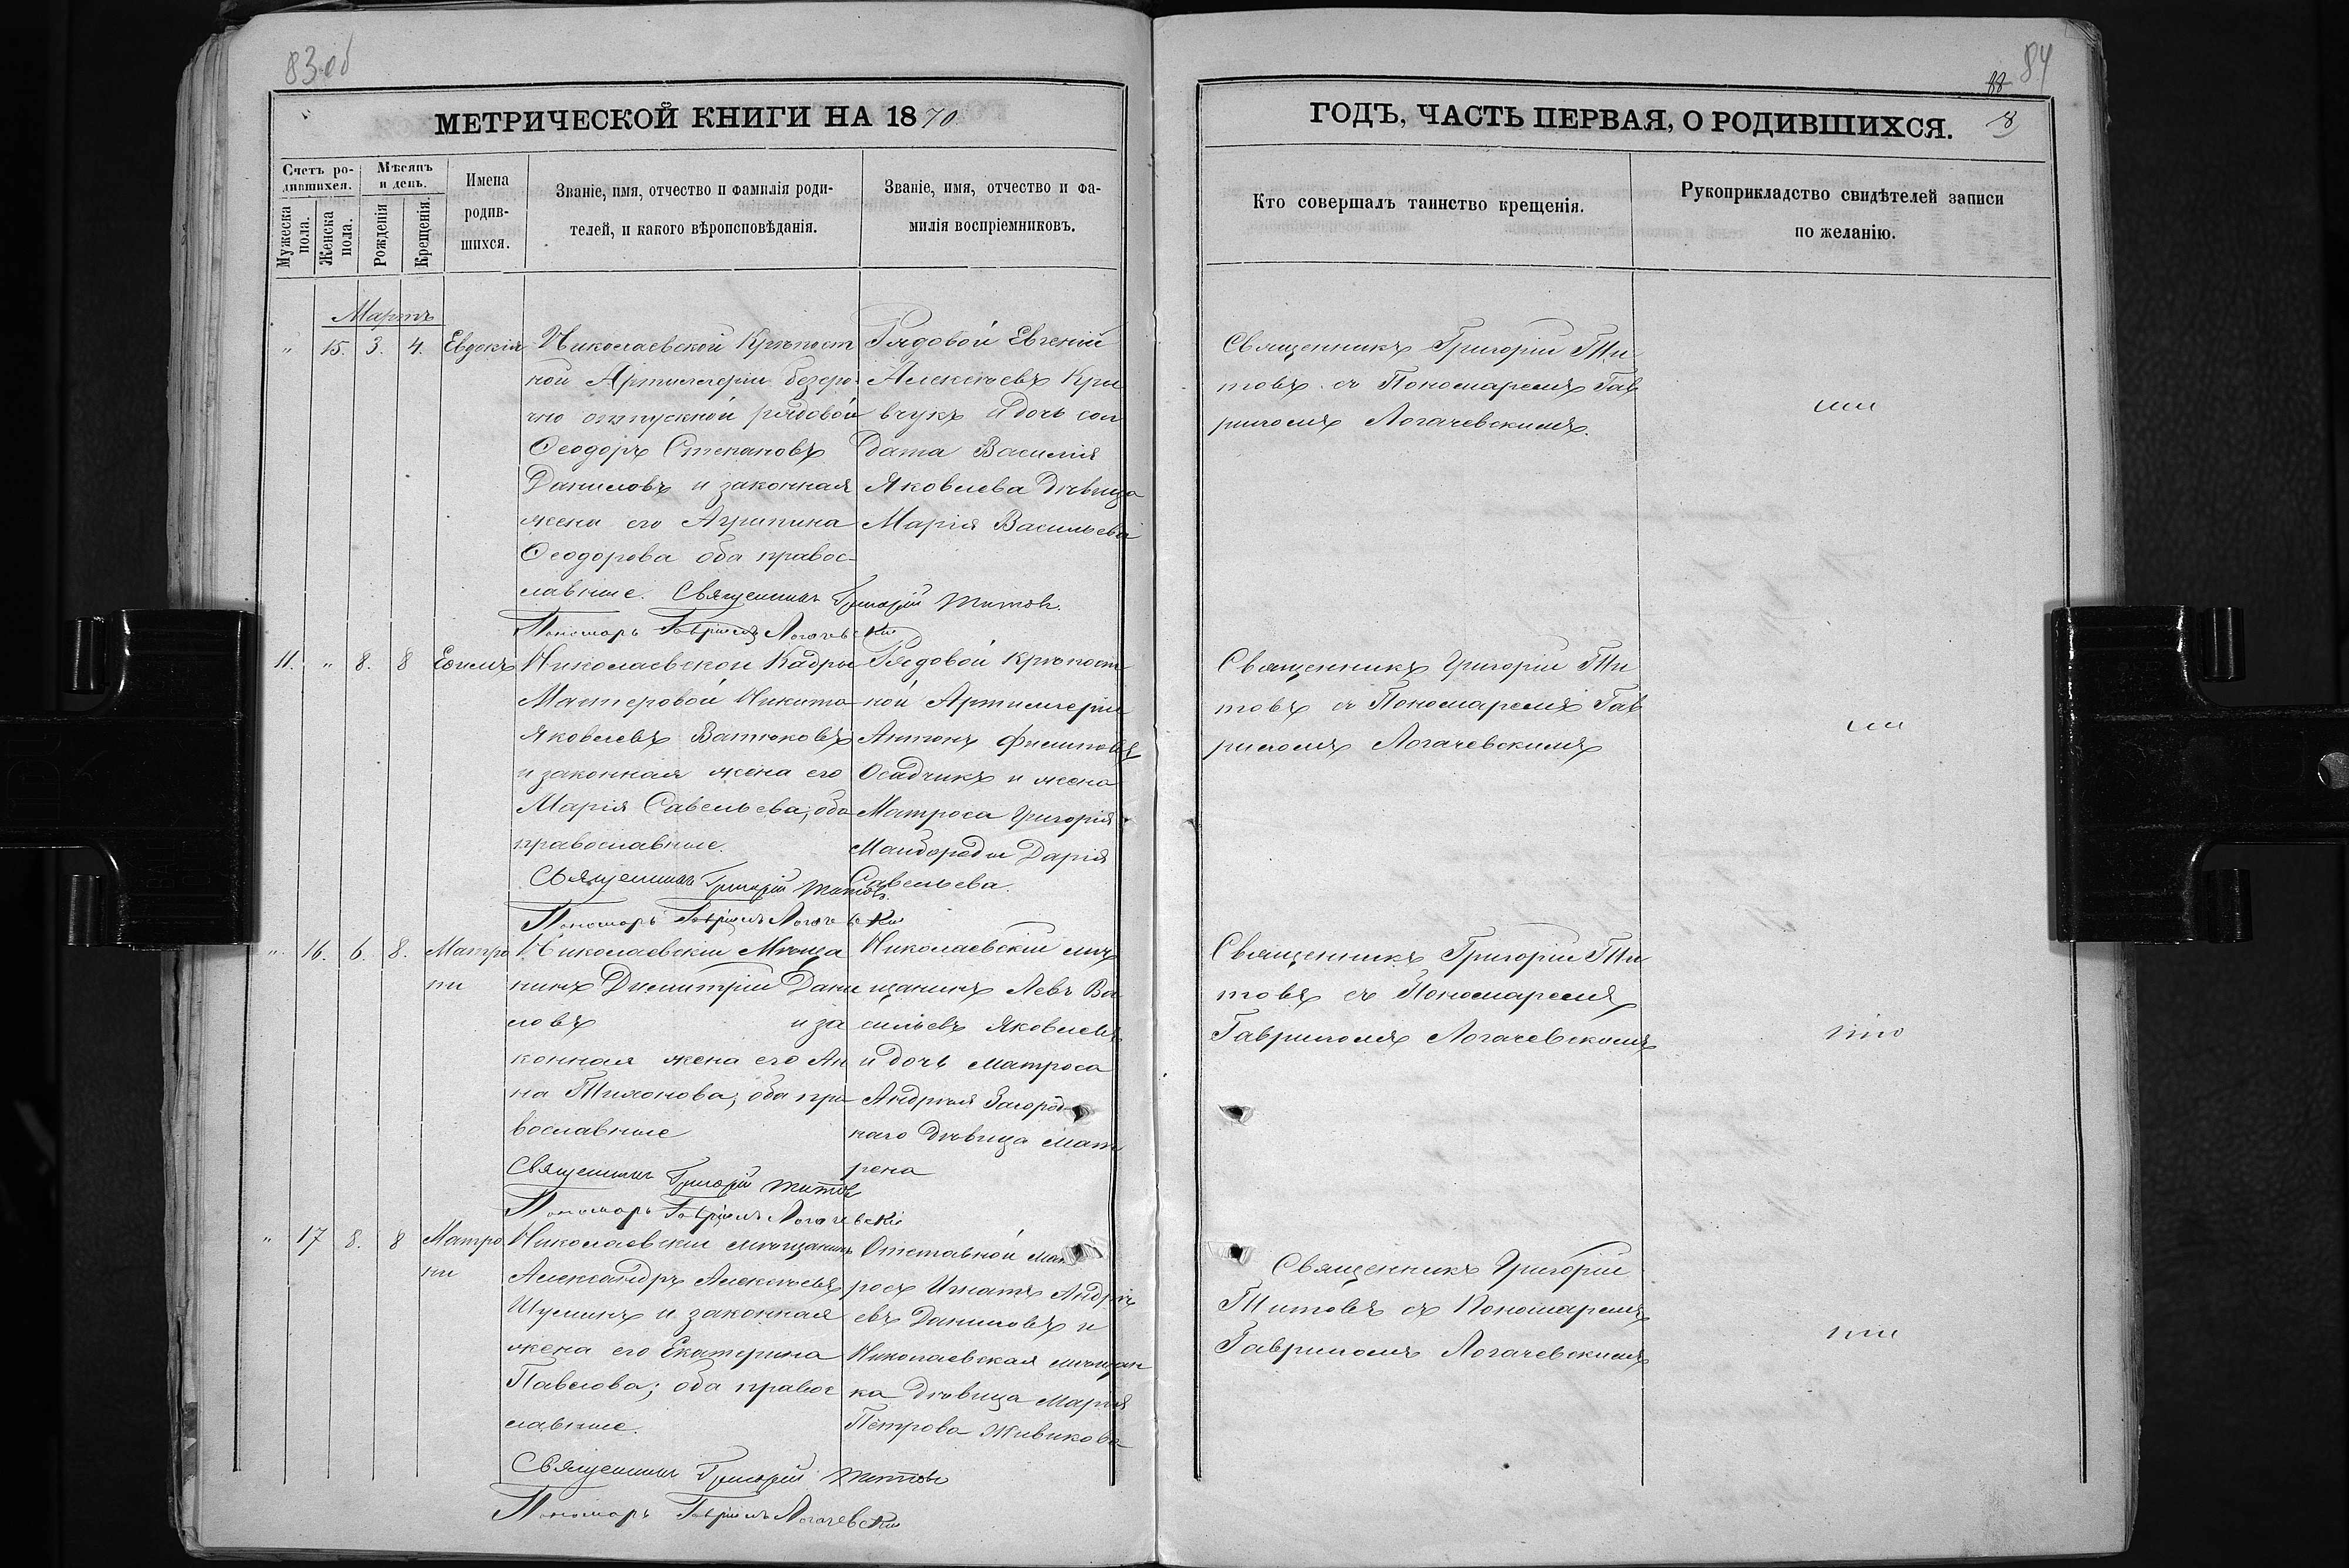 83 об
МЕТРИЧЕСКОЙ КНИГИ НА 1870
Счетъ ро-
дившихся.
Мѣсяцъ
и день.
Мужеска
пола.
Женска
пола.
Рожденія
Крещенія.
Имена
родив-
шихся.
Званіе, имя, отчество и фамилія роди-
телей, и какого вѣроисповѣданія.
Званіе, имя, отчество и фа-
милія воспріемниковъ.
Мартъ
" 15. 3. 4. Евдокія
Николаевской Крѣпост
ной Артиллеріи безсро
чно отпускной рядовой
Ѳеодоръ Степановъ
Даниловъ и законная
жена его Агрипина
Ѳеодорова оба правос-
лавные. Священникъ Григорій Титовъ.
Пономарь Гавріилъ Логачевскій
Рядовой Евгеній
Алексѣевъ Кри
вчукъ и дочь сол
дата Василія
Яковлева дѣвица
Марія Васильева
11. " 8. 8 Ефимъ
Николаевской Кадры
Мастеровой Никита
Яковлевъ Ватюковъ
и законная жена его
Марія Савельева, оба
православные.
Священникъ Григорій Титовъ
Пономарь Гавріилъ Логачевскій
Рядовой Крѣпост
ной Артиллеріи
Антонъ Филиповъ
Осадчикъ и жена
Матроса Григорія
Майбороды Дарія
Савельева.
" 16. 6. 8. Матро
ни
Николаевскій Мѣща
нинъ Димитрій Дани
ловъ и за
конная жена его Ан
на Тихонова, оба пра
вославные
Священникъ Григорій Титовъ
Пономарь Гавріилъ Логачевскій
Николаевскій мѣ
щанинъ Левъ Ва
сильевъ Яковлевъ
и дочь матроса
Андрея Загород-
наго дѣвица Мат
рена
" 17 8. 8 Матро
ни
Николаевскій мѣщанинъ
Александръ Алексѣевъ
Шулинъ и законная
жена его Екатерина
Павлова; оба правос
лавные.
Священникъ Григорій Титовъ
Пономарь Гавріилъ Логачевскій
Отставной мат
росъ Игнатъ Андре
евъ Даниловъ и
Николаевская мѣщан
ка дѣвица Марія
Петрова Живикова
84
88
8
ГОДЪ, ЧАСТЬ ПЕРВАЯ, О РОДИВШИХСЯ.
Кто совершалъ таинство крещенія.
Рукоприкладство свидѣтелей записи
по желанію.
Священникъ Григорій Ти
товъ съ Пономаремъ Гав
риломъ Логачевскимъ.
Священникъ Григорій Ти
товъ съ Пономаремъ Гав
риломъ Логачевскимъ
Священникъ Григорій Ти
товъ съ Пономаремъ
Гавриломъ Логачевскимъ
Священникъ Григорій
Титовъ съ Пономаремъ
Гавриломъ Логачевскимъ